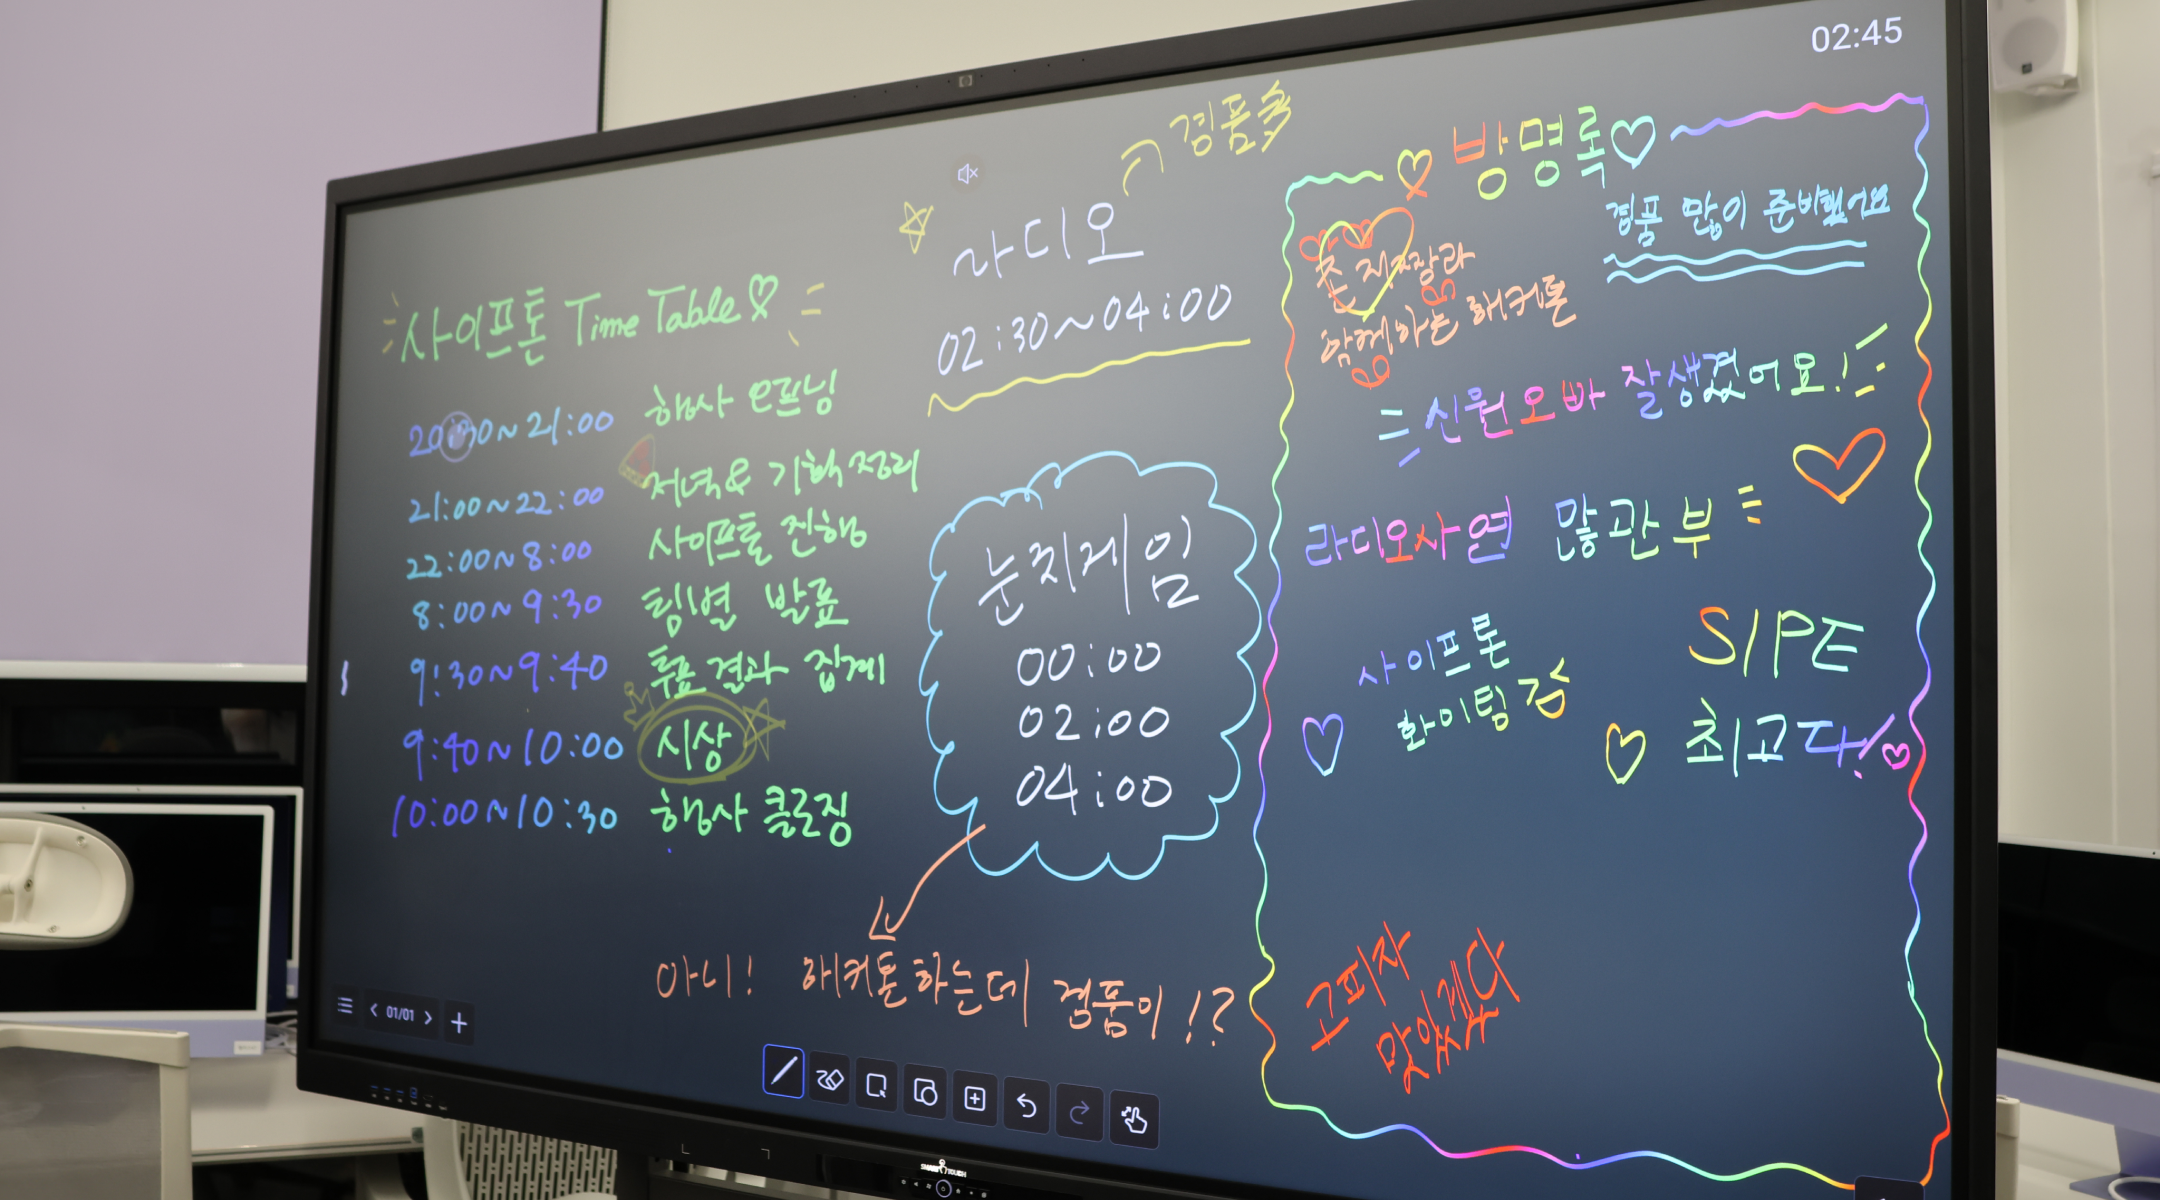 02:45
사이프톤 Time Table♡
20:30~21:00 행사 오프닝
21:00~22:00 저녁& 기획 정리
22:00~8:00 사이프톤 진행
8:00~9:30 팀별 발표
9:30~9:40 투표 결과 집계
9:40~10:00 시상
10:00~10:30 행사 클로징
경품多
라디오
02:30~04:00
눈치게임
00:00
02:00
04:00
아니! 해커톤하는데 경품이!?
♡ 방명록♡
경품 많이 준비했어요
함께하는 해커톤
신원오빠 잘생겼어요!
라디오사연 많관부
사이프톤
화이팅 걈
SIPE
최고다!♡
고피자
맛있겠다
01/01
SMART TOUCH